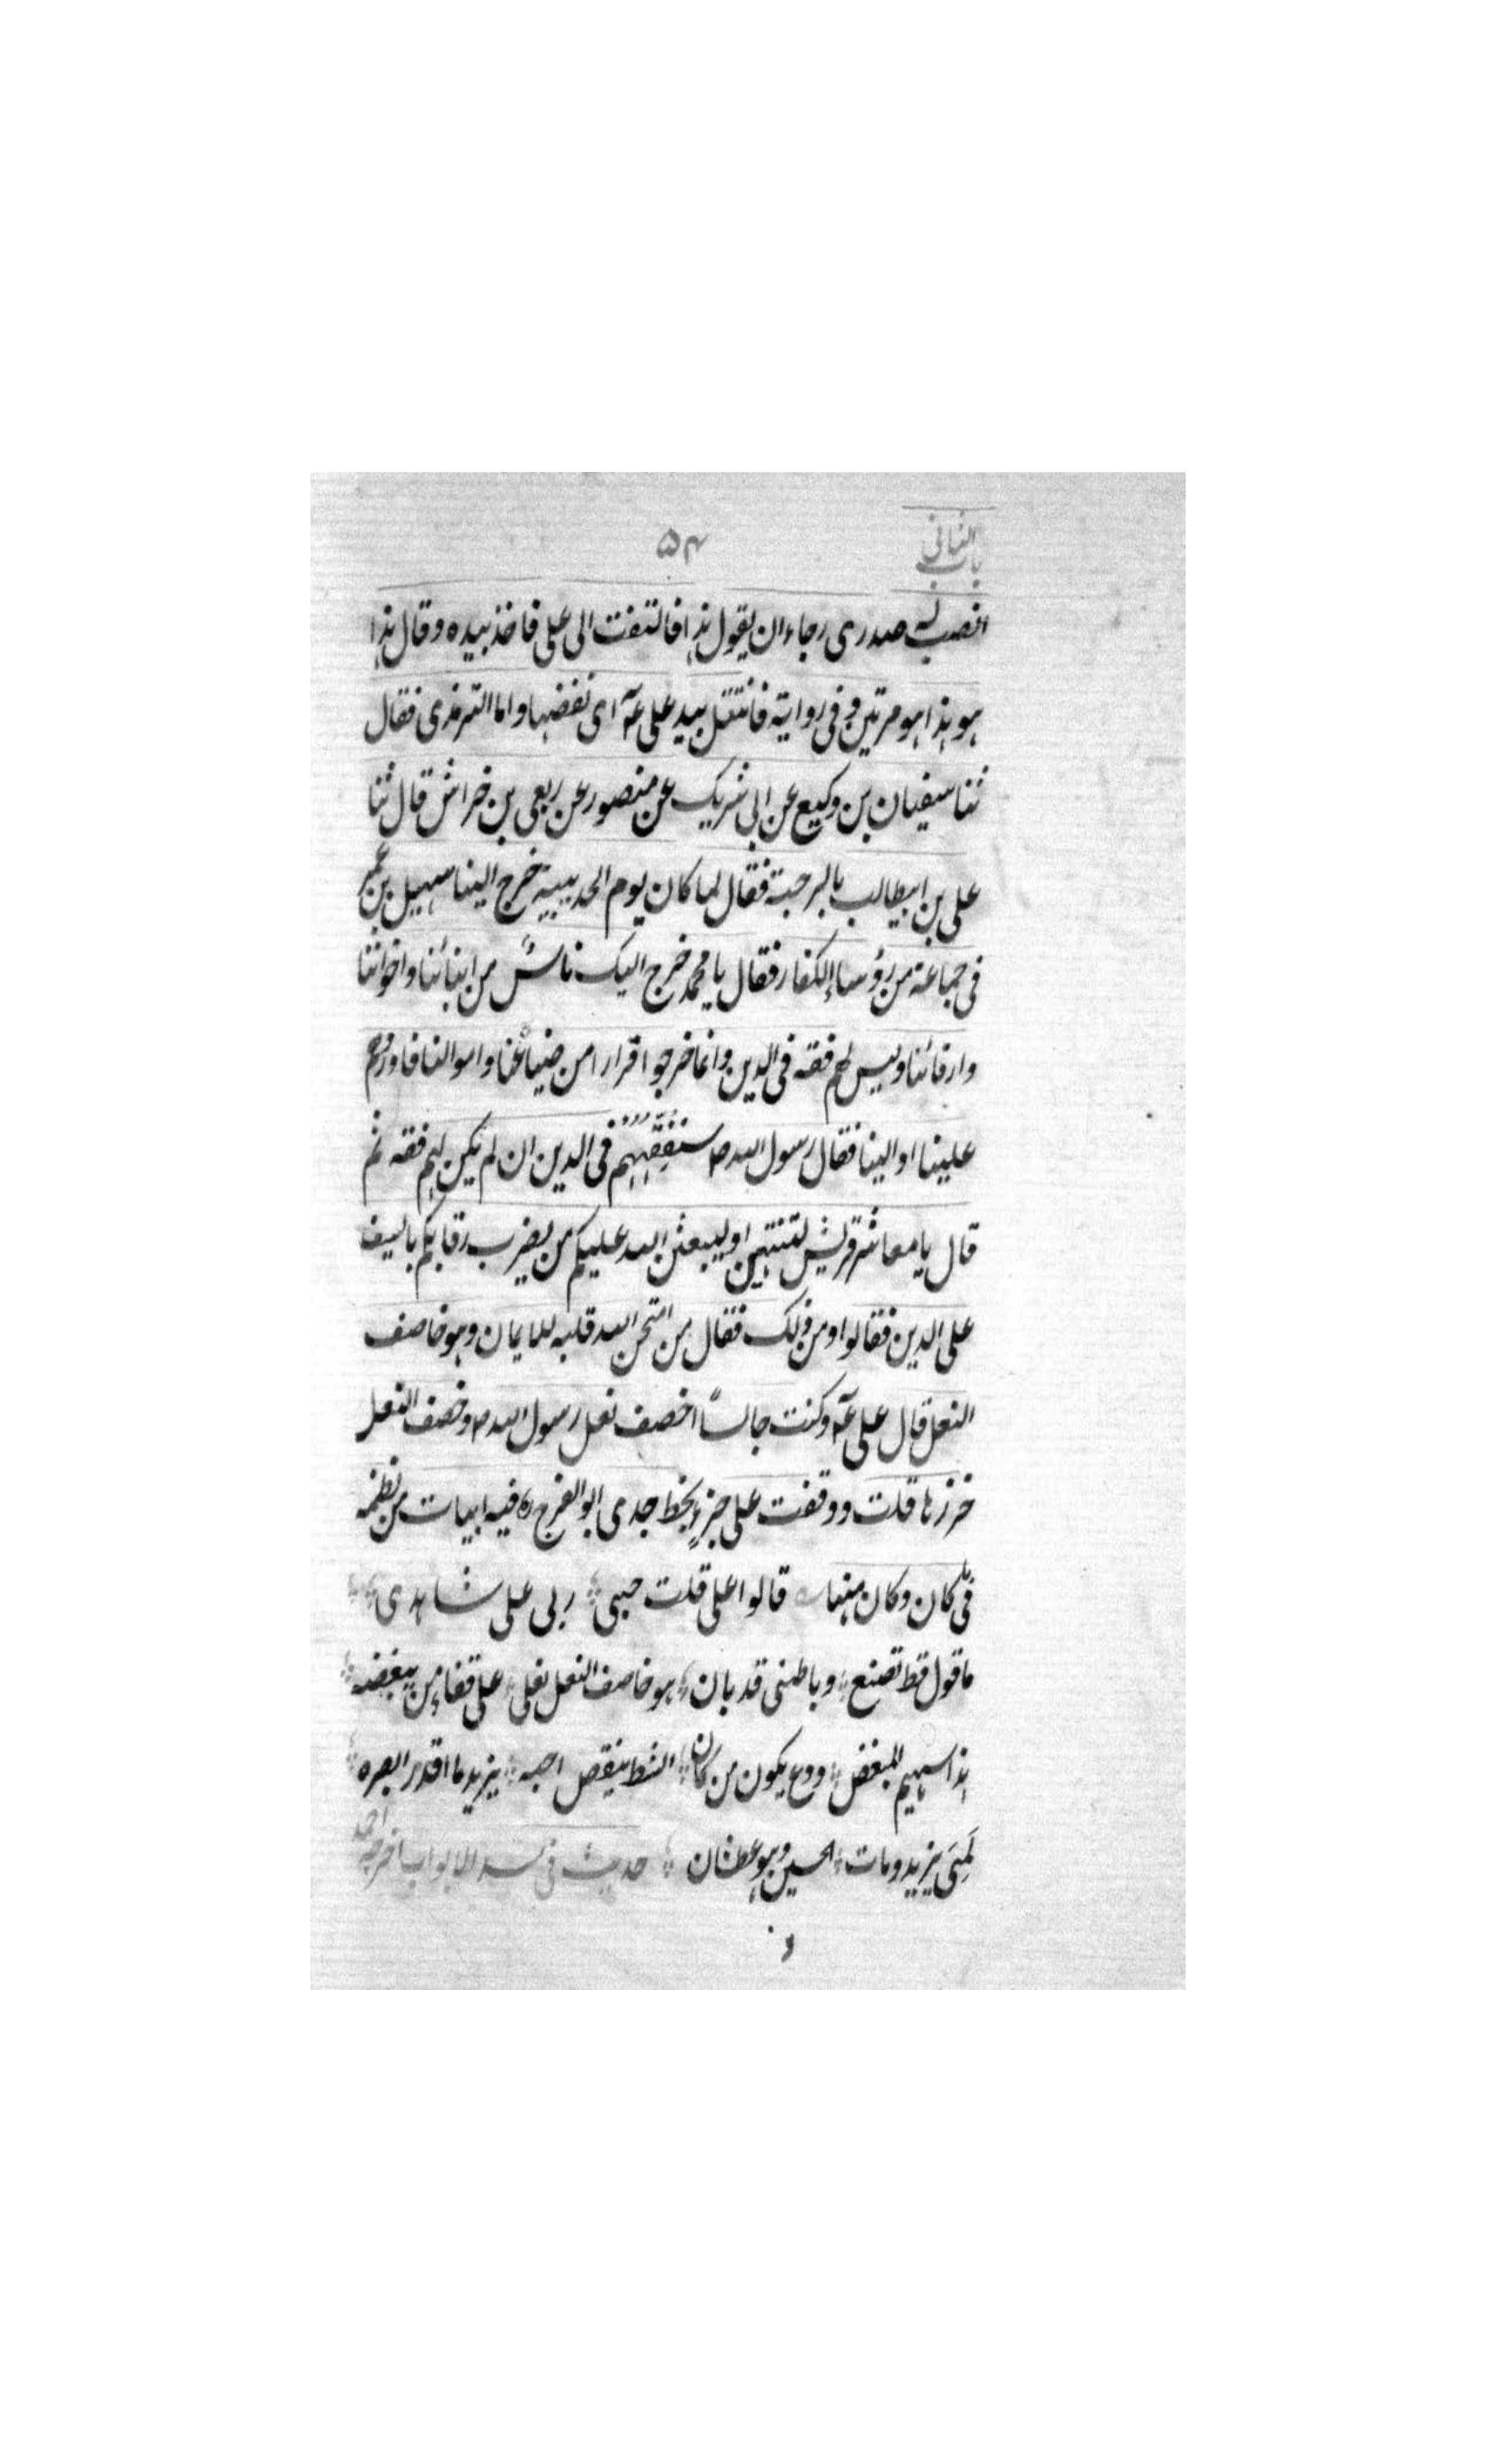 باب الثانی
۵۴
انصب له صدری رجاء ان یقول هذا فالتفت الی علی فاخذ بیده و قال هذا
هو هذا هو مرتین و فی روایة فانتقل بید علی عه ای نفضها و اما الترمذی فقال
ثنا سفیان بن وکیع عن ابی شریک عن منصور عن ربعی بن خراش قال ثنا
علی بن ابیطالب بالرحبة فقال لما کان یوم الحدیبیة خرج الینا سهیل بن عمیر
فی جماعة من رؤساء الکفار فقال یا محمد خرج الیک ناسٌ من ابنائنا و اخواننا
و ارقائنا و لیس لهم فقه فی الدین و انما خرجوا اقرارا من ضیاعنا و اموالنا فاوردهم
علینا او الینا فقال رسول الله ص سنفقههم فی الدین ان لم یکن لهم فقه ثم
قال یا معاشر قریش لتنتهین او لیبعثن الله علیکم من یضرب رقابکم بالسیف
علی الدین فقالوا و من ذلک فقال من امتحن الله قلبه للایمان و هو خاصف
النعل قال علی عه و کنت جالساً اخصف نعل رسول الله ص و خصف النعل
خرزها قلت و وقفت علی جزءٍ بخط جدی ابو الفرج ره فیه ابیات من نظمه
فی کان و کان منها قالوا علی قلت حبی ربی علی شاهدی
ما قول قط تصنع و باطنی قد بان هو خاصف النعل نعلی علی قفاء من یبغضه
هذا سهیم المبغض و دع یکون من کان الشط ینقص احبه یزید ما اقدر ابصره
لمتی یزید و مات الحسین و هو عطشان حدیث فی سد الابواب اخرجه احمد